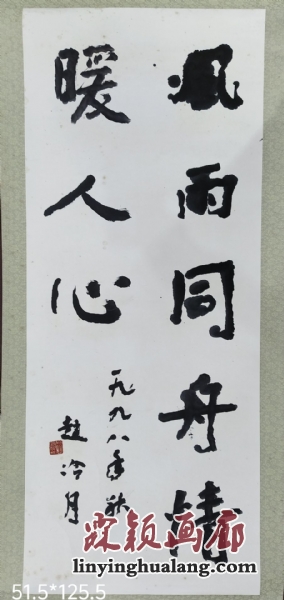 風雨同舟情
暖人心
一九九八年秋
趙冷月
霖颖画廊
linyinghualang.com
51.5*125.5